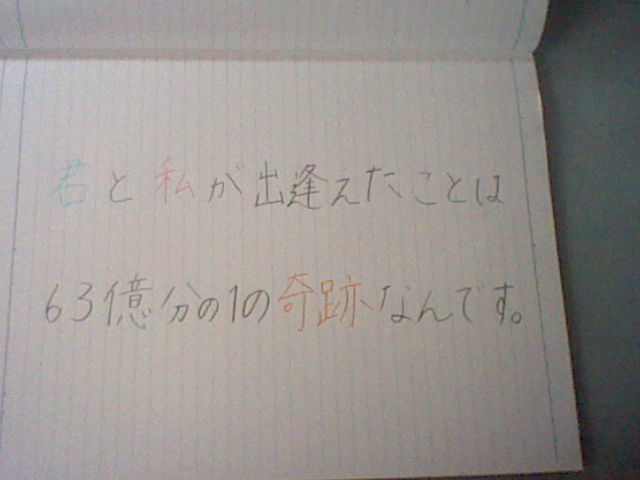 君と私が出逢えたことは
63億分の1の奇跡なんです。